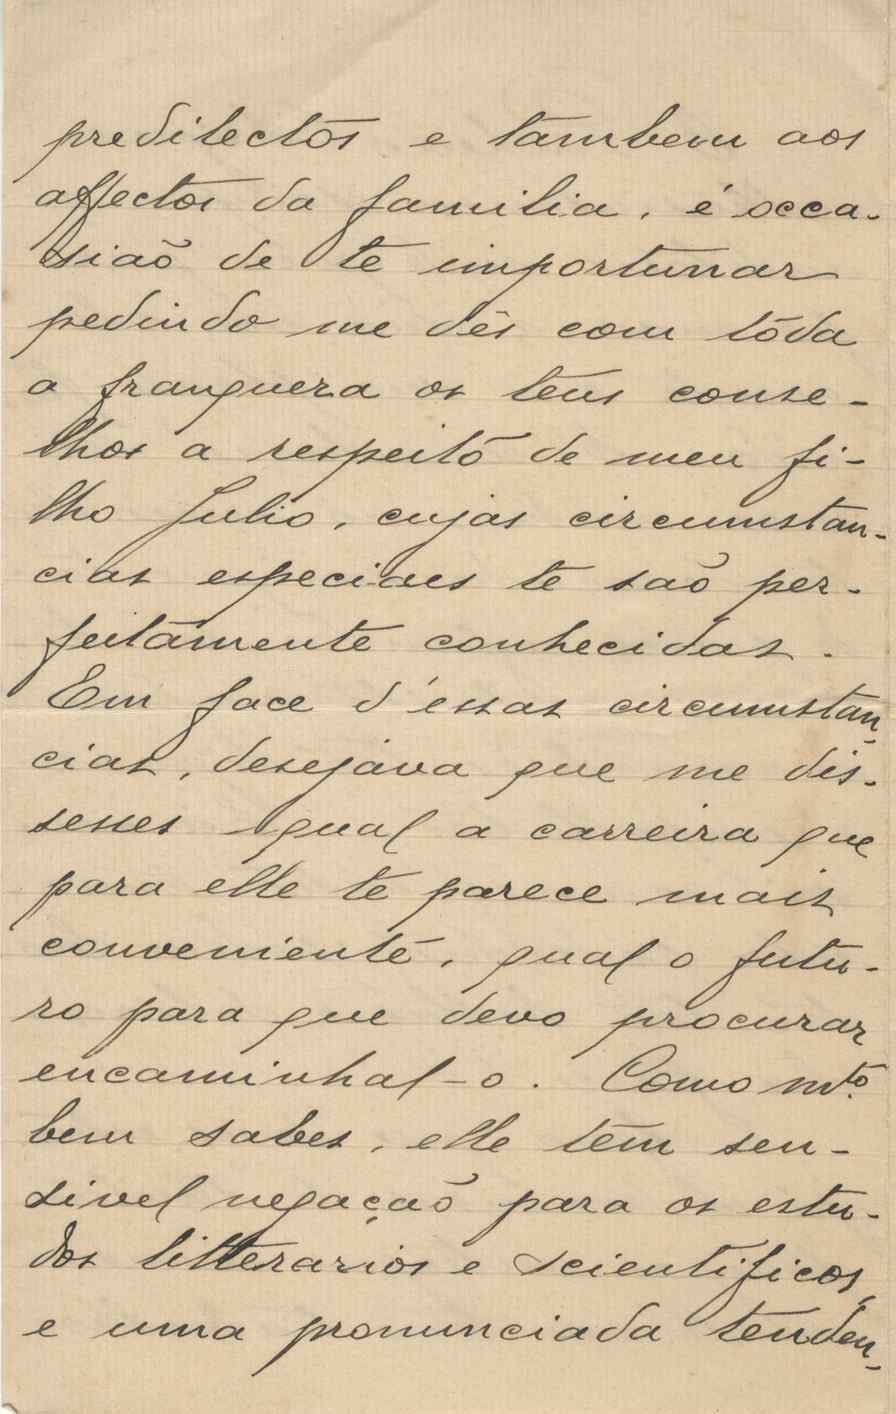 predilectos e tambem aos
affectos da familia, é occa-
sião de te importunar
pedindo me dês com tôda
a franqueza os teus conse-
lhos a respeito de meu fi-
lho Julio, cujas circumstan-
cias especiaes te são per-
feitamente conhecidas.
Em face d'essas circumstan-
cias, desejava que me dis-
sesses qual a carreira que
para elle te parece mais
conveniente, qual o futu-
ro para que devo procurar
encaminhal-o. Como mto.
bem sabes, elle tem sen-
sivel negação para os estu-
dos litterarios e scientificos,
e uma pronunciada tenden-